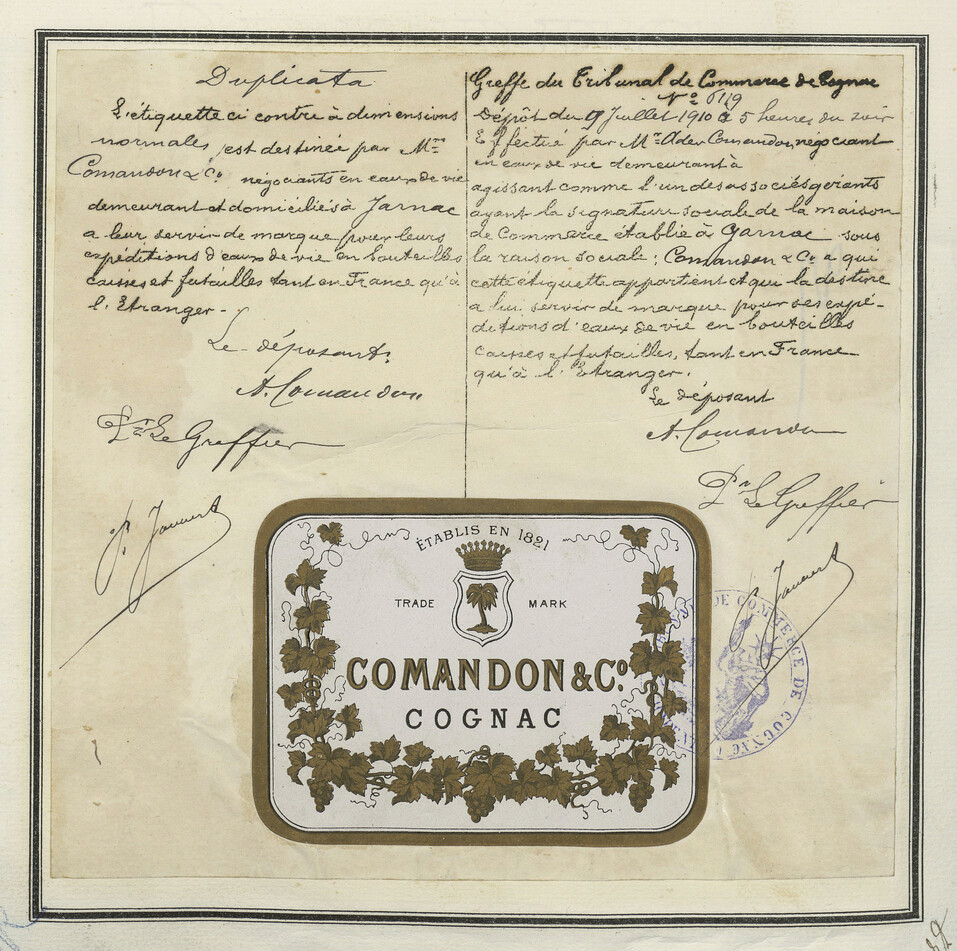 Duplicata
L'étiquette ci contre à dimensions
normales, est destinée par Mrs
Comandon & Co négociants en eaux de vie
demeurant et domiciliés à Jarnac
a leur servir de marque pour leurs
expéditions d'eaux de vie en bouteilles
caisses et futailles tant en France qu'à
l'Etranger -
Le déposant,
A. Comandon
Pr Le Greffier
Greffe du Tribunal de Commerce de Cognac
No 6119
Dépôt du 9 Juillet 1910 à 5 heures du soir
Effectué par Mr Ader Comandon, négociant
en eaux de vie demeurant à
agissant comme l'un des associés gérants
ayant la signature sociale de la maison
de Commerce établie à Jarnac sous
la raison sociale: Comandon & Co a qui
cette étiquette appartient et qui la destine
a lui servir de marque pour ses expé-
ditions d'eaux de vie en bouteilles
caisses et futailles, tant en France
qu'à l'Etranger.
Le déposant
A. Comandon
Pr Le Greffier
ÉTABLIS EN 1821
TRADE MARK
COMANDON & Co.
COGNAC
DE COMMERCE DE COGNAC